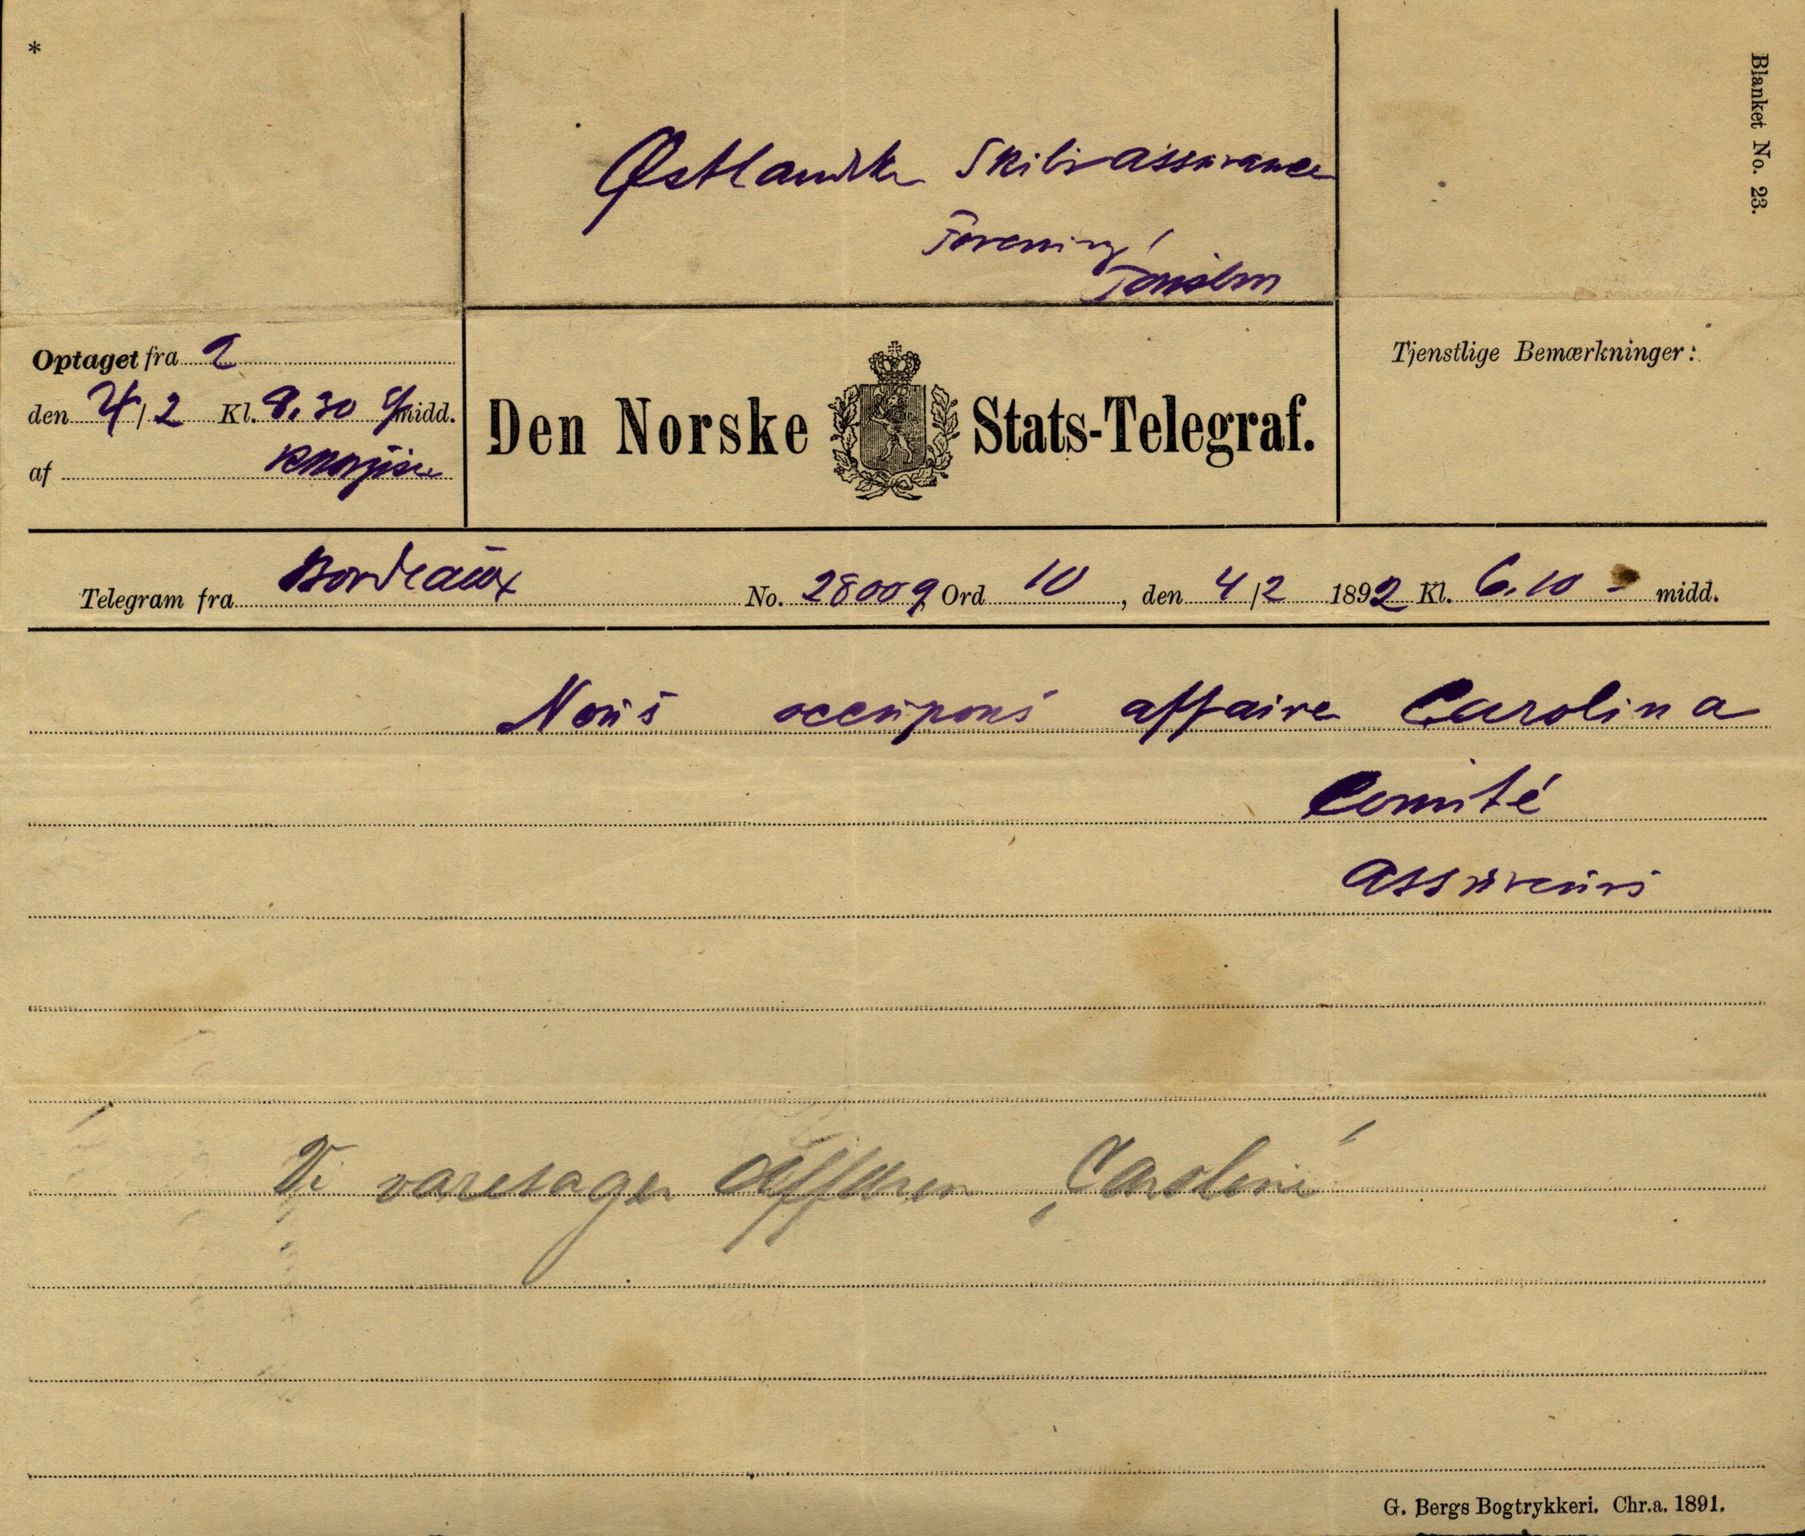 *
Blanket No. 23.
Østlandske Skibsassurance
Forening
Tønsberg
Optaget fra Q
den 4/2 Kl. 9.30 fmidd.
af
Den Norske Stats-Telegraf.
Tjenstlige Bemærkninger:
Telegram fra Bordeaux No. 28009 Ord 10, den 4/2 1892 Kl. 6.10 - midd.
Nous occupons affaire Carolina
Comité
Assureurs
Vi varetager Affæren „Carolina"
G. Bergs Bogtrykkeri. Chr.a. 1891.